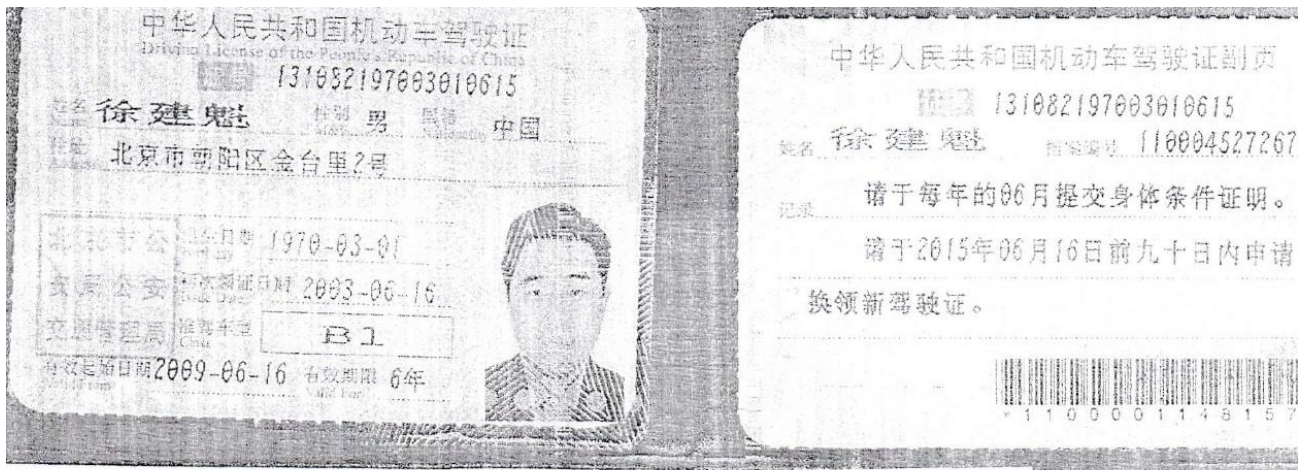 中华人民共和国机动车驾驶证
Driving License of the People's Republic of China
证号 131082197003010615
姓名 徐建魁 性别 男 国籍 中国
住址 北京市朝阳区金台里2号
北京市公
安局公安
交通管理局
出生日期 1970-03-01
初次领证日期 2003-06-16
准驾车型 B1
Class
有效起始日期 2009-06-16 有效期限 6年
Valid From Valid For
中华人民共和国机动车驾驶证副页
证号 131082197003010615
姓名 徐建魁 档案编号 110004527267
记录 请于每年的06月提交身体条件证明。
请于2015年06月16日前九十日内申请
换领新驾驶证。
*1100001148157